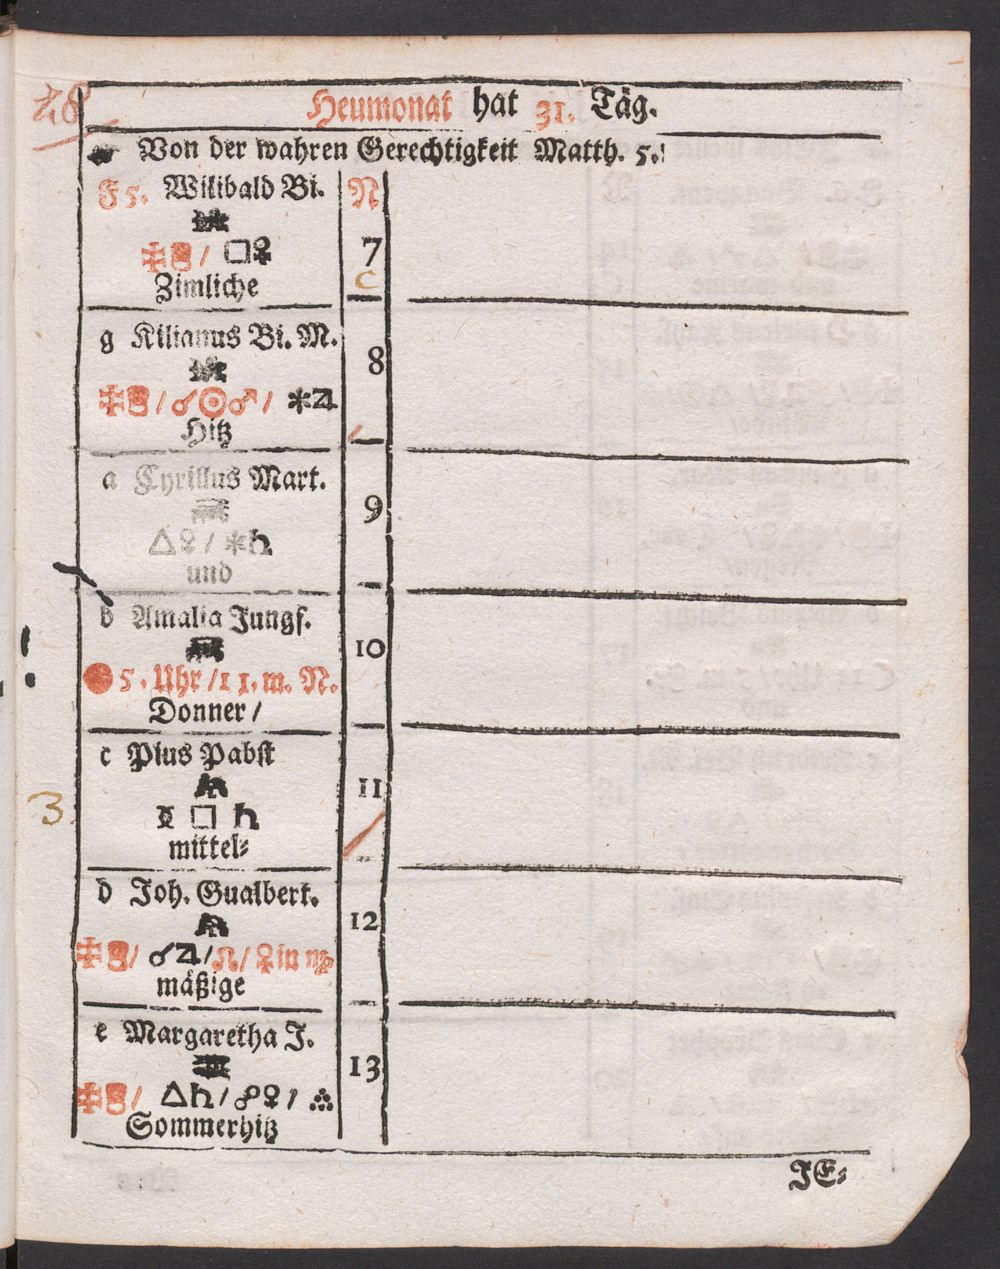 28
Heumonat hat 31. Täg.
Von der wahren Gerechtigkeit Matth. 5.
F 5. Wilibald Bi. N
□♀ 7
Zimliche C
g Kilianus Bi. M.
8
/ ☌☉♂ / ✶♃
Hitz
a Cyrillus Mart.
9
△♀ / ✶♄
und
b Amalia Jungf.
10
5. Uhr / 11. m. N.
Donner /
c Pius Pabst
11
□ ♄
3
mittel⸗
d Joh. Gualbert.
12
/ ☌♃ / ☊ / ♀ in ♍
mäßige
e Margaretha J.
13
/ △♄ / ☍♀ /
Sommerhitz
JE⸗